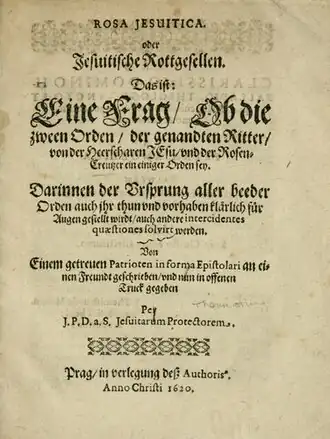 ROSA JESUITICA.
oder
Jesuitische Rottgesellen.
Das ist:
Eine Frag/ Ob die
zween Orden/ der genandten Ritter/
von der Heerscharen JEsu/ vnd der Rosen-
Creutzer ein einiger Orden sey.
Darinnen der Vrsprung aller beeder
Orden auch jhr thun vnd vorhaben klärlich für
Augen gestellt wirdt/ auch andere intercidentes
quæstiones solvirt werden.
Von
Einem getreuen Patrioten in forma Epistolari an ei-
nen Freundt geschrieben/ vnd nun in offenen
Truck gegeben
Per
J. P. D. a. S. Jesuitarum Protectorem.
Prag/ in verlegung deß Authoris.
Anno Christi 1620.